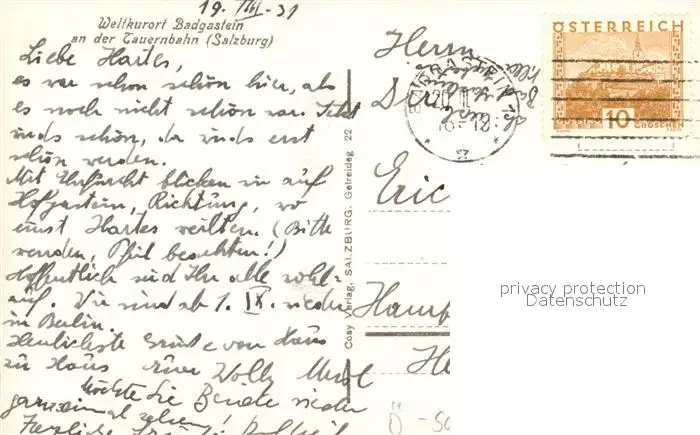 19. VIII. 31
Weltkurort Badgastein
an der Tauernbahn (Salzburg)
Liebe Hartes,
es war schon schön hier, als
es noch nicht schön war. Jetzt
wird's schön, da wird's erst
schön werden.
Mit Ehrfurcht blicken wir auf
Hofgastein, Richtung, wo
einst Hartes weilten. (Bitte
wenden, Pfeil beachten!)
Hoffentlich sind Ihr alle wohl-
auf. Wir sind ab 1. IX. wieder
in Berlin.
Herzlichste Grüße von Haus
zu Haus
Möchte Sie Beide wieder
gern einmal sehen!
Herzliche
Cosy Verlag, SALZBURG, Getreideg. 22
Herrn
Eric
Hamb
ÖSTERREICH
10
GROSCHEN
privacy protection
Datenschutz
Ö - Sa